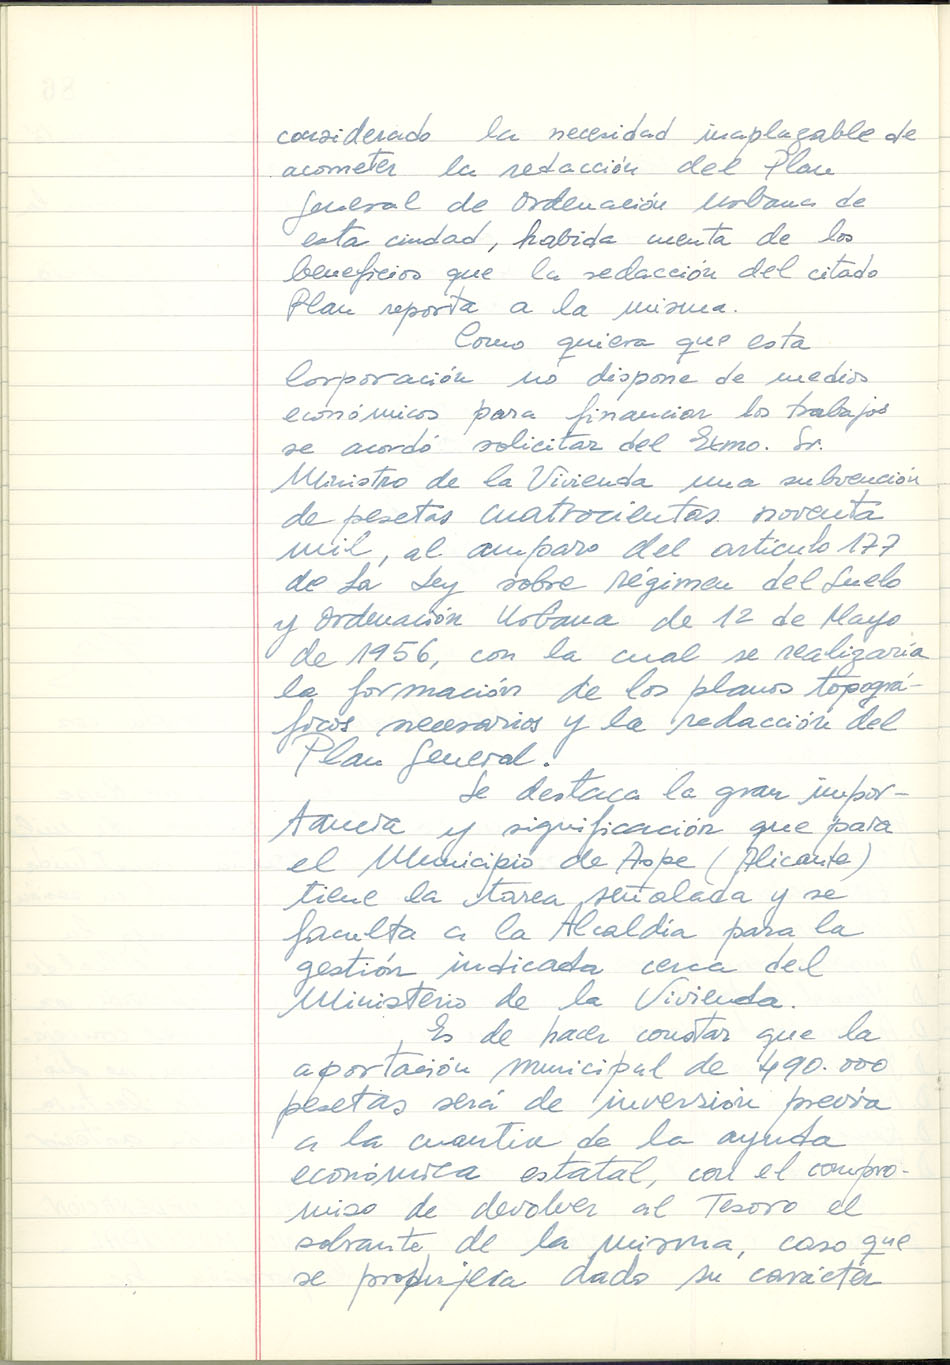 considerado la necesidad inaplazable de
acometer la redacción del Plan
General de Ordenación Urbana de
esta ciudad, habida cuenta de los
beneficios que la redacción del citado
Plan reporta a la misma.
Como quiera que esta
Corporación no dispone de medios
económicos para financiar los trabajos
se acordó solicitar del Exmo. Sr.
Ministro de la Vivienda una subvención
de pesetas cuatrocientas noventa
mil, al amparo del artículo 177
de La Ley sobre Régimen del Suelo
y Ordenación Urbana de 12 de Mayo
de 1956, con la cual se realizaría
la formación de los planos topográ-
ficos necesarios y la redacción del
Plan General.
Se destaca la gran impor-
tancia y significación que para
el Municipio de Aspe (Alicante)
tiene la tarea señalada y se
faculta a la Alcaldía para la
gestión indicada cerca del
Ministerio de la Vivienda.
Es de hacer constar que la
aportación municipal de 490.000
pesetas será de inversión previa
a la cuantía de la ayuda
económica estatal, con el compro-
miso de devolver al Tesoro el
sobrante de la misma, caso que
se produjera dado su carácter